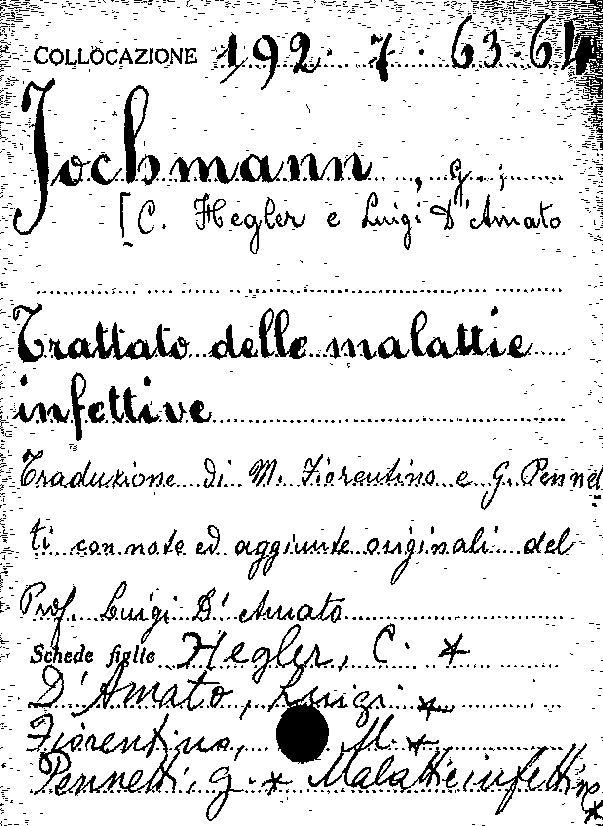 COLLOCAZIONE 192. 7. 63.64
Jochmann, G.;
[C. Hegler e Luigi D'Amato
Trattato delle malattie
infettive
Traduzione di M. Fiorentino e G. Pennet
ti con note ed aggiunte originali del
Prof. Luigi D'Amato
Schede figlie Hegler, C. *
D'Amato, Luigi *
Fiorentino, M. *
Pennetti, G. * Malattie infettive *